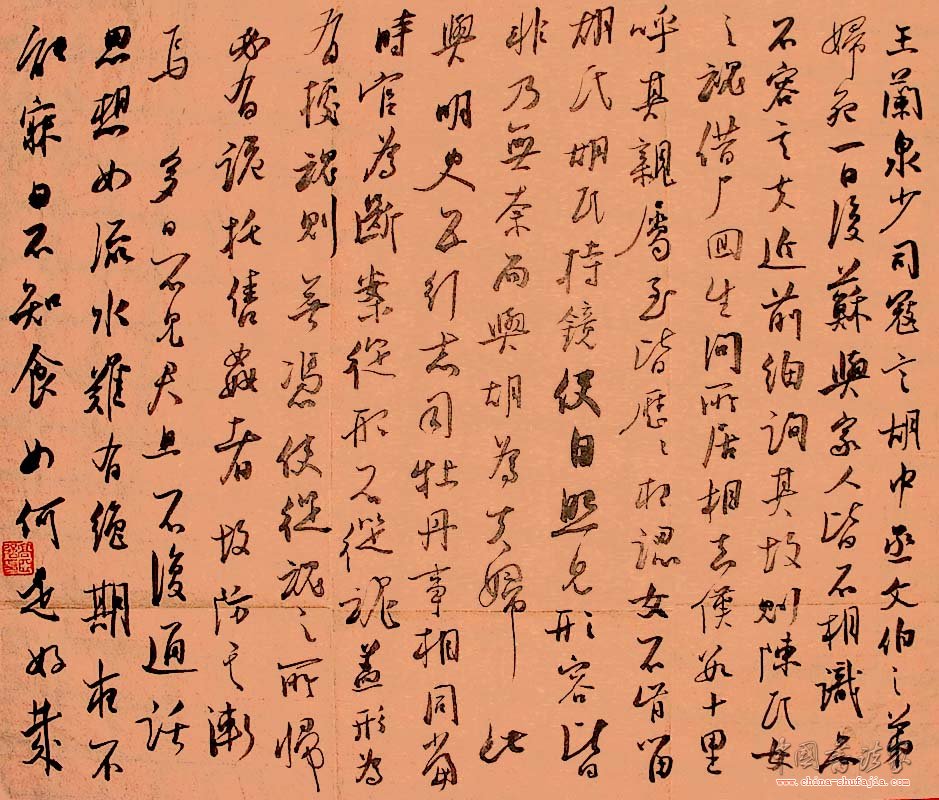 王蘭泉少司寇言胡中丞文伯之弟
婦死一日後蘇與家人皆不相識亦
不容其夫近前細詢其故則陳氏女
之魂借尸回生問所居相去僅數十里
呼其親屬至皆歷〻相認女不肯留
胡氏胡氏持鏡使自照見形容皆
非乃無奈而與胡為夫婦 此
與明史五行志司牡丹事相同當
時官為斷案從形不從魂蓋形為
有據魂則無憑使從魂之所歸
必有詭托售姦者故防其漸
焉 多日不見君且不復通話
思想如流水難有絕期夜不
能寐日不知食如何是好哉
www.china-shufajia.com